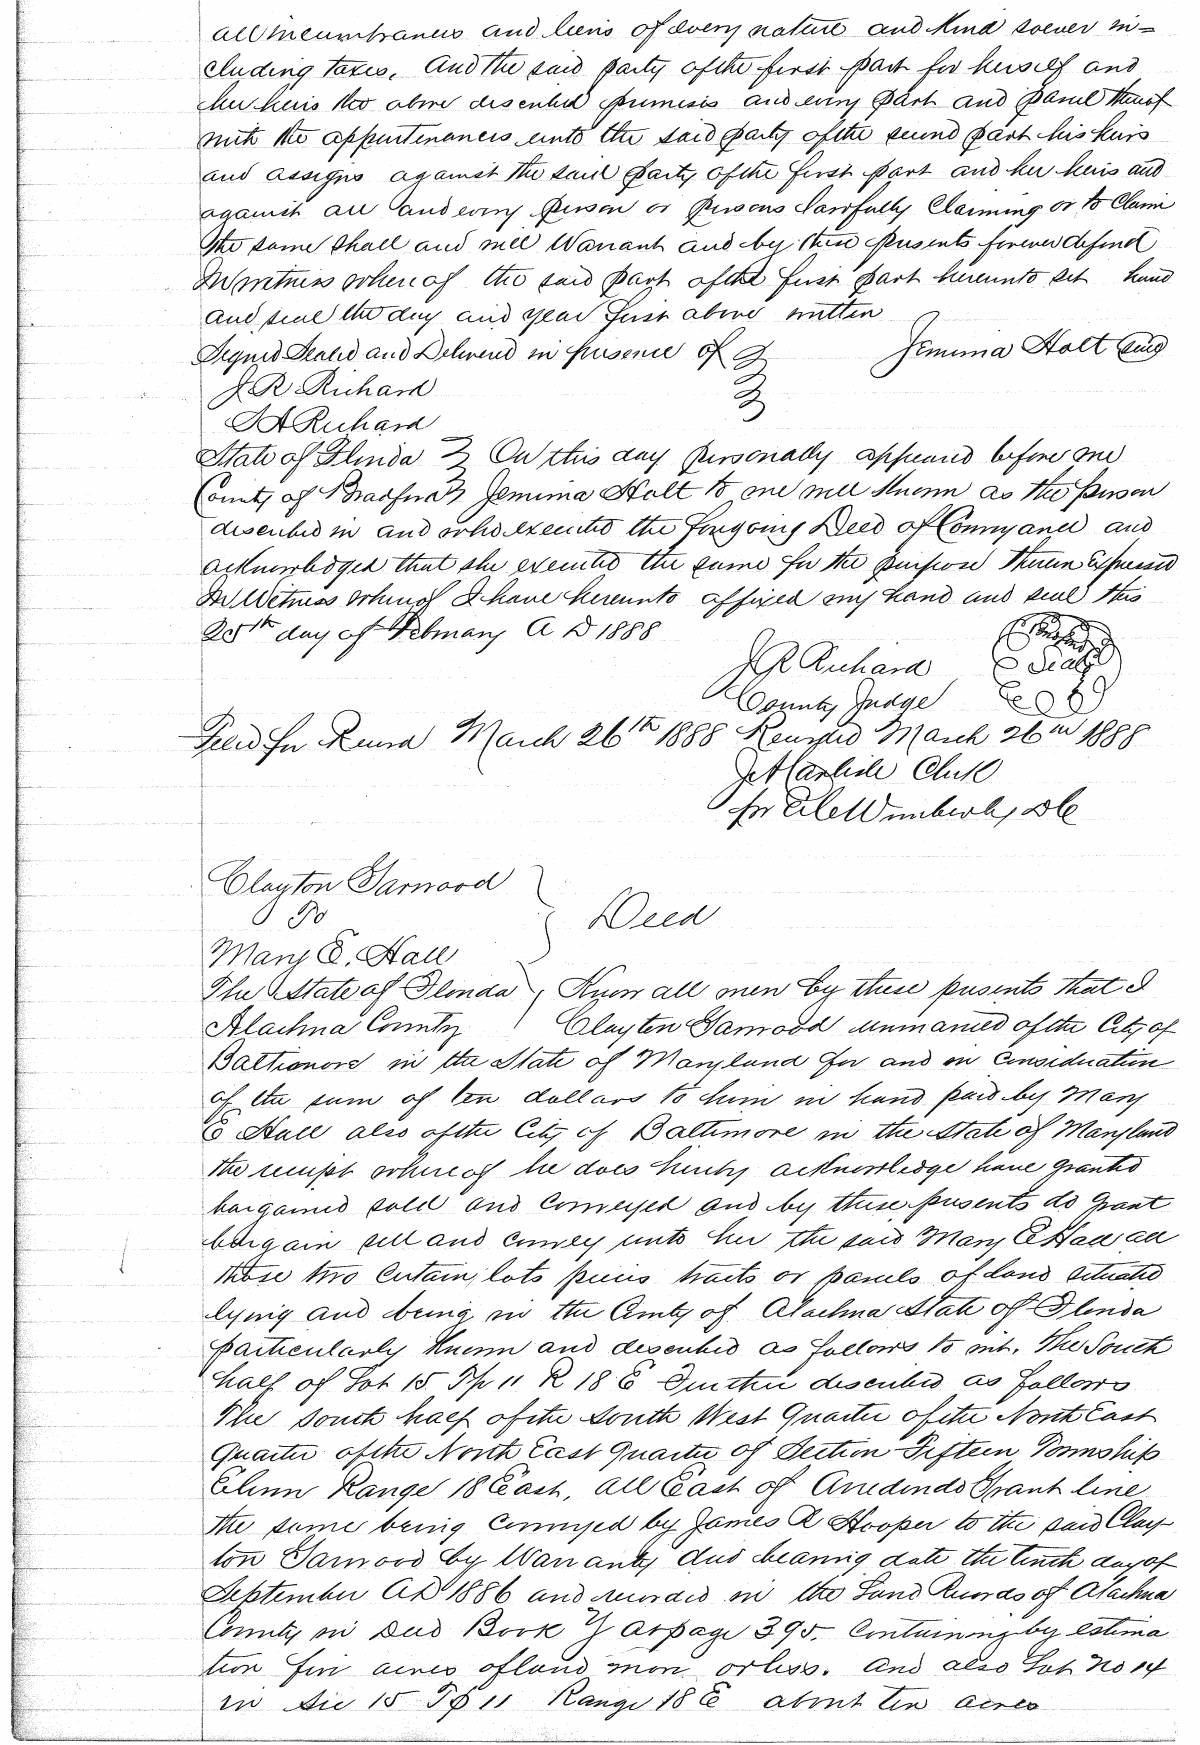 all incumbrances and liens of every nature and kind soever in=
cluding taxes. And the said party of the first part for herself and
her heirs the above described premises and every part and parcel thereof
with the appurtenances unto the said party of the second part his heirs
and assigns against the said party of the first part and her heirs and
against all and every person or persons lawfully claiming or to claim
the same shall and will Warrant and by these presents forever defend
In witness whereof the said part of the first part hereunto set hand
and seal the day and year first above written
Signed Sealed and Delivered in presence of Jemima Holt Seal
J R Richard
Richard
State of Florida } On this day personally appeared before me
County of Bradford } Jemima Holt to me well known as the person
described in and who executed the forgoing Deed of Conveyance and
acknowledged that she executed the same for the purpose therein Expressed
In Witness whereof I have hereunto affixed my hand and seal this
25th day of February A D 1888
J R Richard Seal
County Judge
Filed for Record March 26th 1888 Recorded March 26th 1888
J A Carlisle Clerk
for Wimberly, D C
Clayton Garwood
To } Deed
Mary E. Hall
The State of Florida } Know all men by these presents that I
Alachua County } Clayton Garwood unmarried of the City of
Baltimore in the State of Maryland for and in consideration
of the sum of ten dollars to him in hand paid by Mary
E Hall also of the City of Baltimore in the State of Maryland
the receipt whereof he does hereby acknowledge have granted
bargained sold and conveyed and by these presents do grant
bargain sell and convey unto her the said Mary E Hall all
those two certain lots pieces tracts or parcels of land situated
lying and being in the County of Alachua State of Florida
particularly known and described as follows to wit. The South
half of Lot 15 Tp 11 R 18 E Further described as follows
The south half of the South West Quarter of the North East
Quarter of the North East Quarter of Section Fifteen Township
Eleven Range 18 East, all East of Arredondo Grant line
the same being conveyed by James R Hooper to the said Clay
ton Garwood by Warranty deed bearing date the tenth day of
September A D 1886 and recorded in the Land Records of Alachua
County in Deed Book Y at page 395. Containing by estima
tion five acres of land more or less. And also Lot No 14
in Sec 15 Tp 11 Range 18 E about ten acres